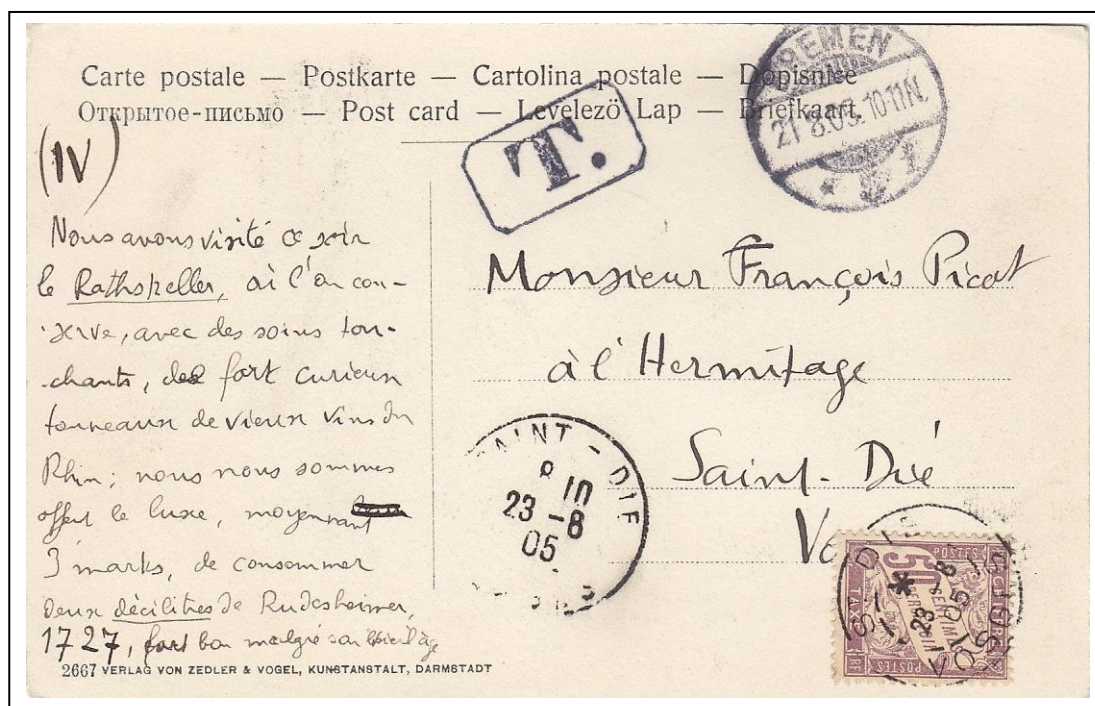 Carte postale — Postkarte — Cartolina postale — Dopisnice
Открытое-письмо — Post card — Levelező Lap — Briefkaart.
T.
BREMEN
21.8.05. 10-11N.
(IV)
Nous avons visité ce soir
le Rathskeller, où l'on con-
serve, avec des soins tou-
chants, de fort curieux
tonneaux de vieux vins du
Rhin ; nous nous sommes
offert le luxe, moyennant
3 marks, de consommer
deux décilitres de Rudesheimer,
1727, fort bon malgré son
Monsieur François Picot
à l'Hermitage
Saint-Dié
SAINT-DIE
8 10
23 -8
05
ST DIE
VOSGES
23 - 8
05
50
CENTIMES
A PERCEVOIR
POSTES
POSTES
2667 VERLAG VON ZEDLER & VOGEL, KUNSTANSTALT, DARMSTADT